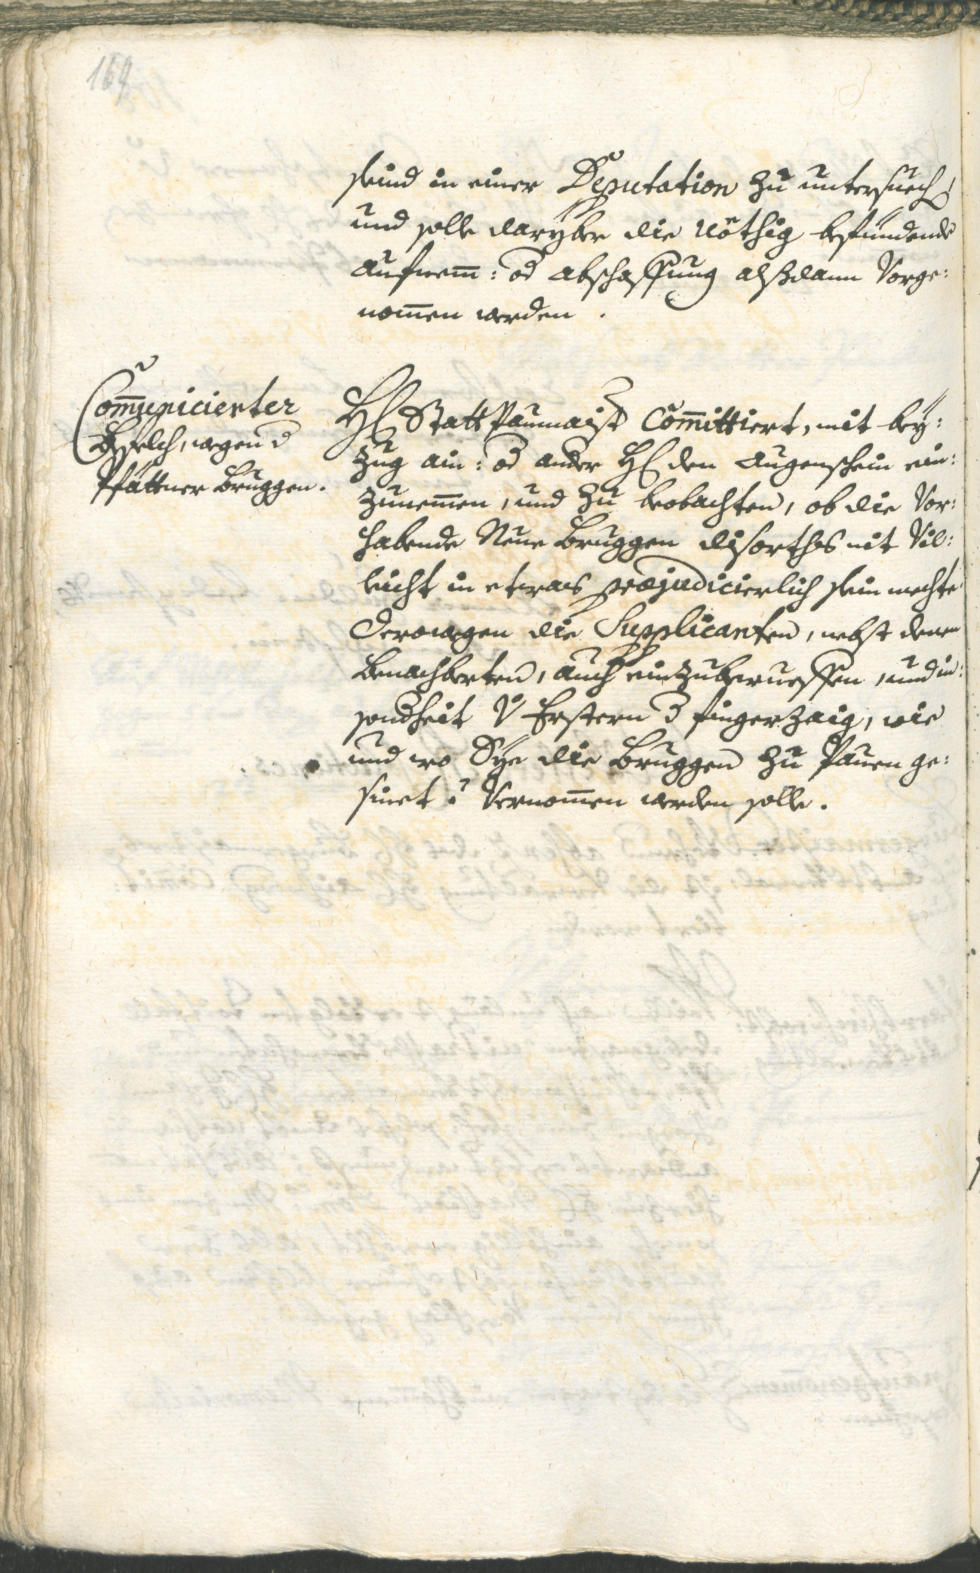 169
seind in einer Deputation zu untersuech
und solle daryber die Nöthig befündende
aufnem̅: od abschaffung alßdann Vorge:
nom̅en werden.
Com̅unicierter
Befelch, wegen d
Pfattner Bruggen.
H Statt Paumaist Com̅ittiert, mit bey:
zug ain: od ander H den augenschein ein:
zunem̅en, und zu beobachten, ob die Vor:
habende Neue Bruggen diserthes nit Vil:
leicht in etwas præjudicierlich sein mechte
derowegen die Supplicanten, nebst denen
benachberten, auch einzuberueffen, und in:
sondheit V Erstern d fingerzaig, wie
und wo Sye die Bruggen zu Pauen ge:
sinet, Vernom̅en werden solle.